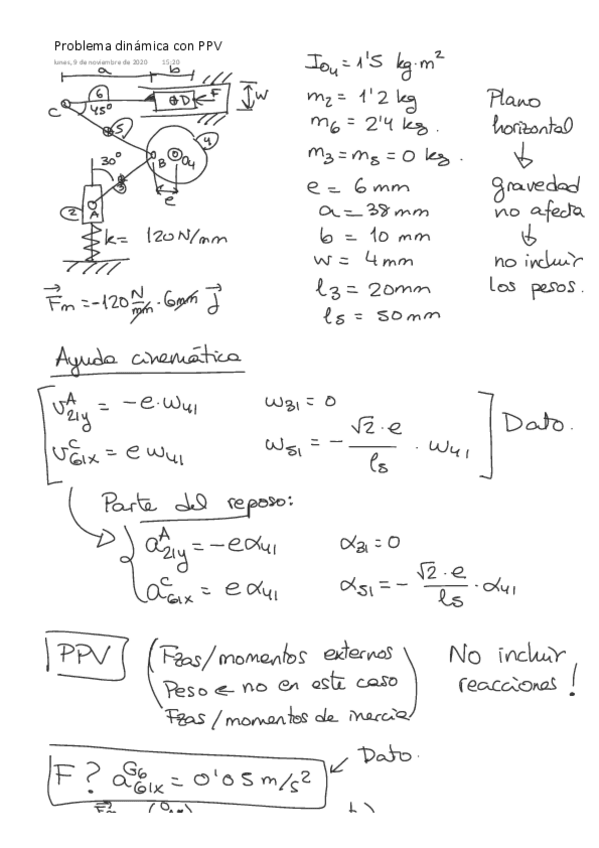 Problema dinámica con PPV
lunes, 9 de noviembre de 2020 15:20
a b
6 F W
C 45° D
5 4
30° B O4
3 e
2 A
k = 120 N/mm
F⃗m = -120 N/mm · 6mm j⃗
I_O4 = 1'5 kg·m²
m2 = 1'2 kg
m6 = 2'4 kg.
m3 = m5 = 0 kg.
e = 6 mm
a = 38 mm
b = 10 mm
w = 4 mm
l3 = 20mm
l5 = 50mm
Plano
horizontal
↓
gravedad
no afecta
↓
no incluir
los pesos.
Ayuda cinemática
v^A_21y = -e·ω41 ω31 = 0
v^C_61x = e ω41 ω51 = - √2·e / l5 · ω41
Dato.
Parte del reposo:
a^A_21y = -e α41 α31 = 0
a^C_61x = e α41 α51 = - √2·e / l5 · α41
PPV
Fzas/momentos externos
Peso ← no en este caso
Fzas/momentos de inercia
No incluir
reacciones!
F? a^G6_61x = 0'05 m/s² Dato.